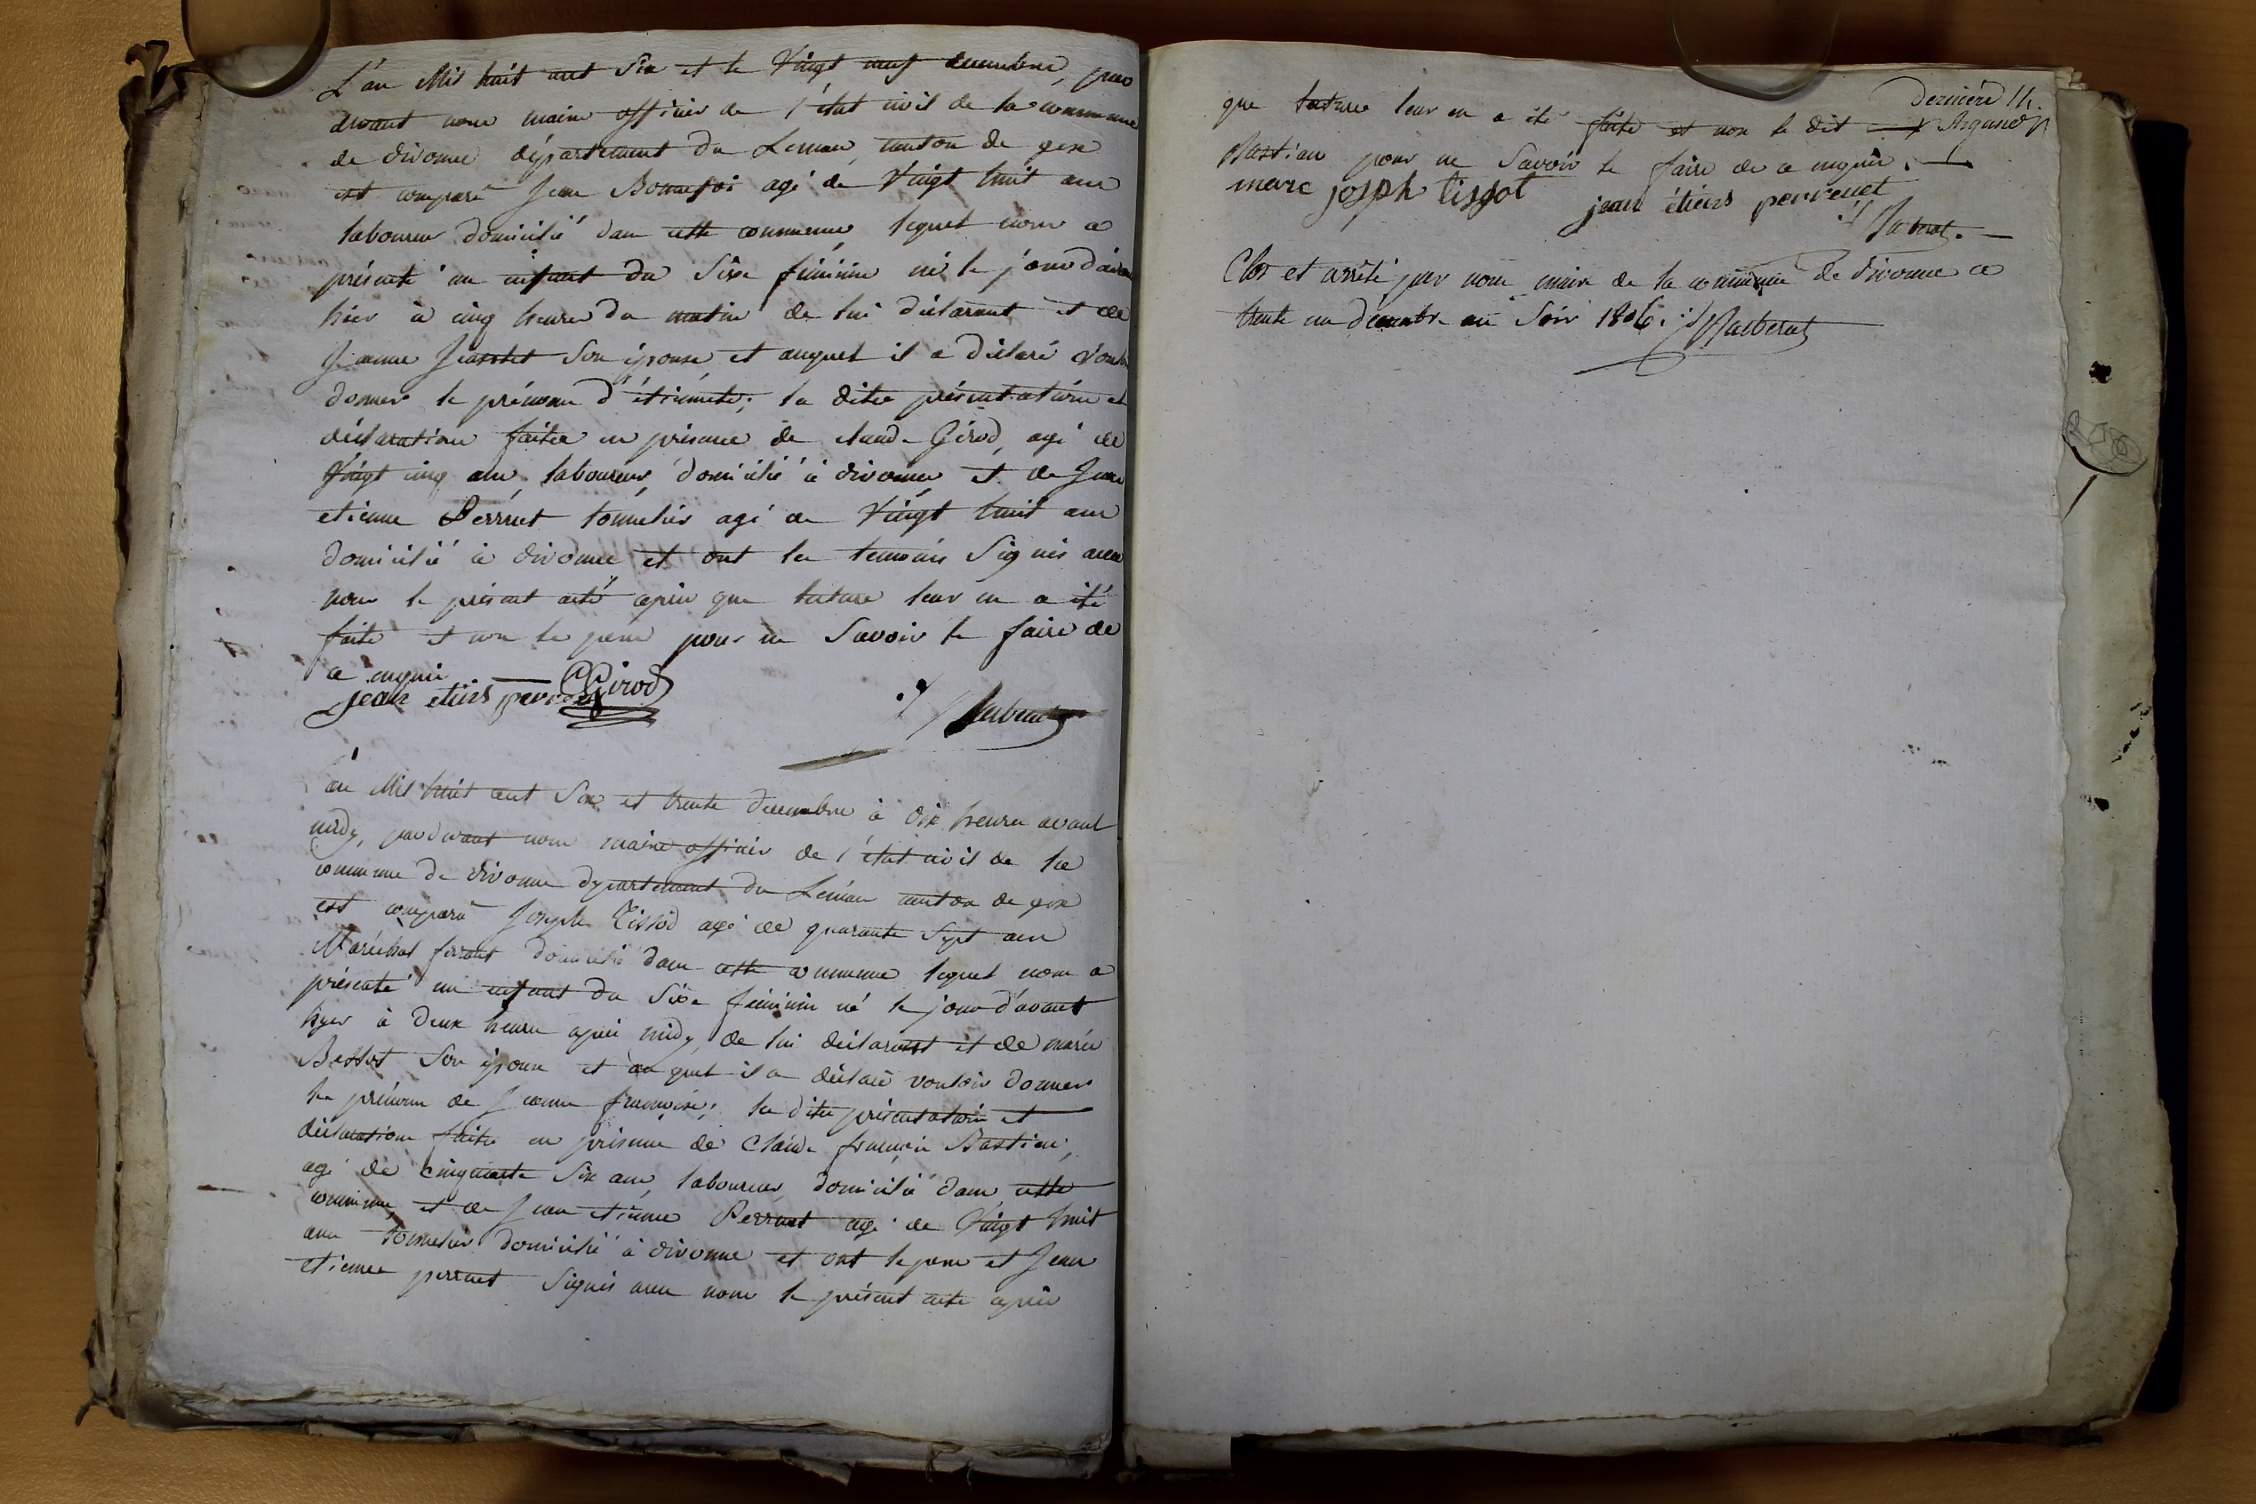 L'an Mil huit cent Six et le Vingt neuf decembre, par
devant nous maire officier de l'état civil de la commune
de divonne département du Leman, canton de gex
est comparu Jean Bonnefoi agé de Vingt huit ans
laboureur domicilié dans cette commune, lequel nous a
présenté un enfant du Sèxe féminin né le jour d'avan
hier à cinq heures du matin de lui déclarant et de
Jeanne Son épouse et auquel il a déclaré Vouloir
donner le prénom d'étiennete; la dite présentatoin et
déclaration faites en présence de claude Girod, agé de
Vingt cinq ans, laboureur, domicilié à divonne et de Jean
etienne Perrnet tonnelier agé de Vingt huit ans
domicilié à divonne et ont les temoins Signés avec
nous le présent acte après que lecture leur en a été
faite et non le pere pour ne Savoir le faire de
ce enquis
jean etiens perrenet CGirod
L'an Mil huit cent Six et trente decembre à dix heures avant
midy, pardevant nous maire officier de l'état civil de la
commune de divonne département du Léman canton de gex
est comparu Joseph Tissod agé de quarante Sept ans
Maréchal ferrant domicilié dans cette commune lequel nous a
présenté un enfant du Sèxe féminin né le jour d'avant
hyer à deux heures après midy, de lui déclarant et de marie
Son épouse et auquel il a déclaré vouloir donner
les prénoms de Jeanne francoise; la dite présentatoin et
déclaration faites en présence de Claude francois Bastian,
agé de cinquante Six ans, laboureur, domicilié dans cette
commune, et de Jean etienne Perrnet agé de Vingt huit
ans tonnelier domicilié à divonne et ont le pere et Jean
etienne perrnet Signés avec nous le présent acte après
dernière
que lecture leur en a été faite et non le dit
Bastian pour ne Savoir le faire de ce enquis.
marc josph tissot jean étiens perrenet
Clos et arrêté par nous maire de la commune de divonne ce
trente un décembre au Soir 1806.